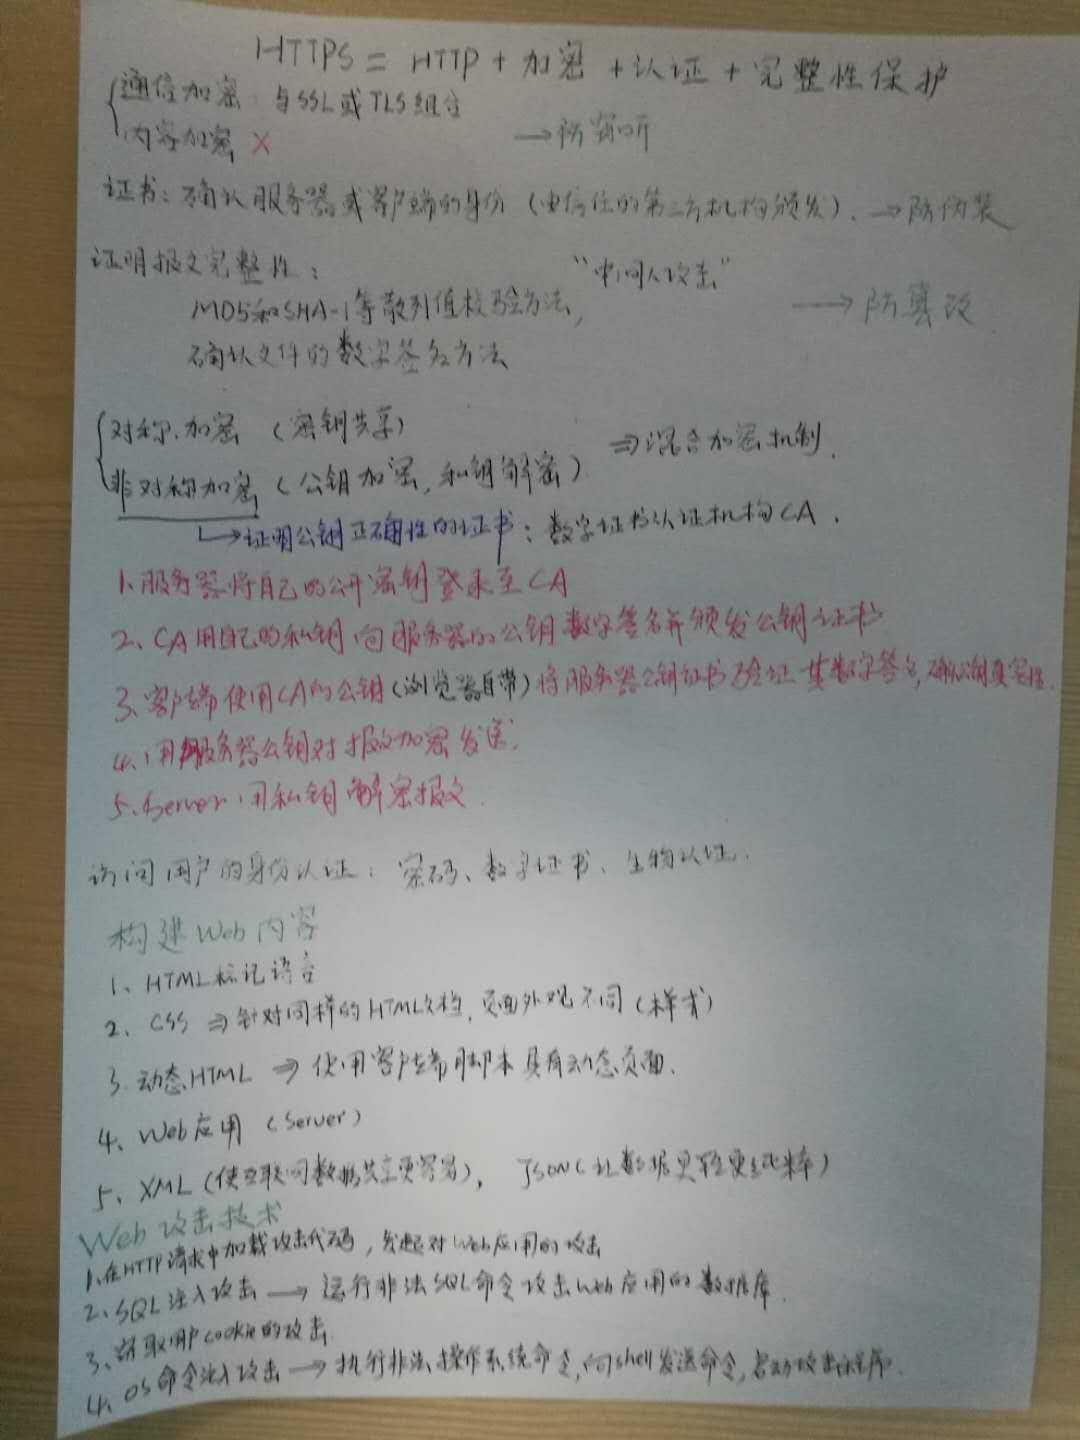 HTTPS = HTTP + 加密 + 认证 + 完整性保护
通信加密:与SSL或TLS组合
内容加密 X → 防窃听
证书:确认服务器或客户端的身份(由信任的第三方机构颁发). → 防伪装
证明报文完整性: “中间人攻击”
MD5和SHA-1等散列值校验方法, → 防篡改
确认文件的数字签名方法
对称加密 (密钥共享) ⇒ 混合加密机制.
非对称加密 (公钥加密,私钥解密)
↳ 证明公钥正确性的证书:数字证书认证机构CA.
1.服务器将自己的公开密钥登录至CA
2、CA用自己的私钥向服务器的公钥数字签名并颁发公钥证书
3、客户端使用CA的公钥(浏览器自带)将服务器公钥证书验证其数字签名,确认公钥真实性.
4.用服务器公钥对报文加密发送.
5.Server用私钥解密报文.
访问用户的身份认证:密码、数字证书、生物认证.
构建Web内容
1、HTML标记语言
2、CSS ⇒ 针对同样的HTML文档,页面外观不同(样式)
3.动态HTML ⇒ 使用客户端脚本具有动态页面.
4、Web应用 (Server)
5、XML(使互联网数据共享更容易), JSON(让数据更轻更纯粹)
Web攻击技术
1、在HTTP请求中加载攻击代码,发起对Web应用的攻击
2、SQL注入攻击 → 运行非法SQL命令攻击Web应用的数据库.
3、获取用户cookie的攻击.
4、OS命令注入攻击 → 执行非法操作系统命令,向shell发送命令,启动攻击程序.